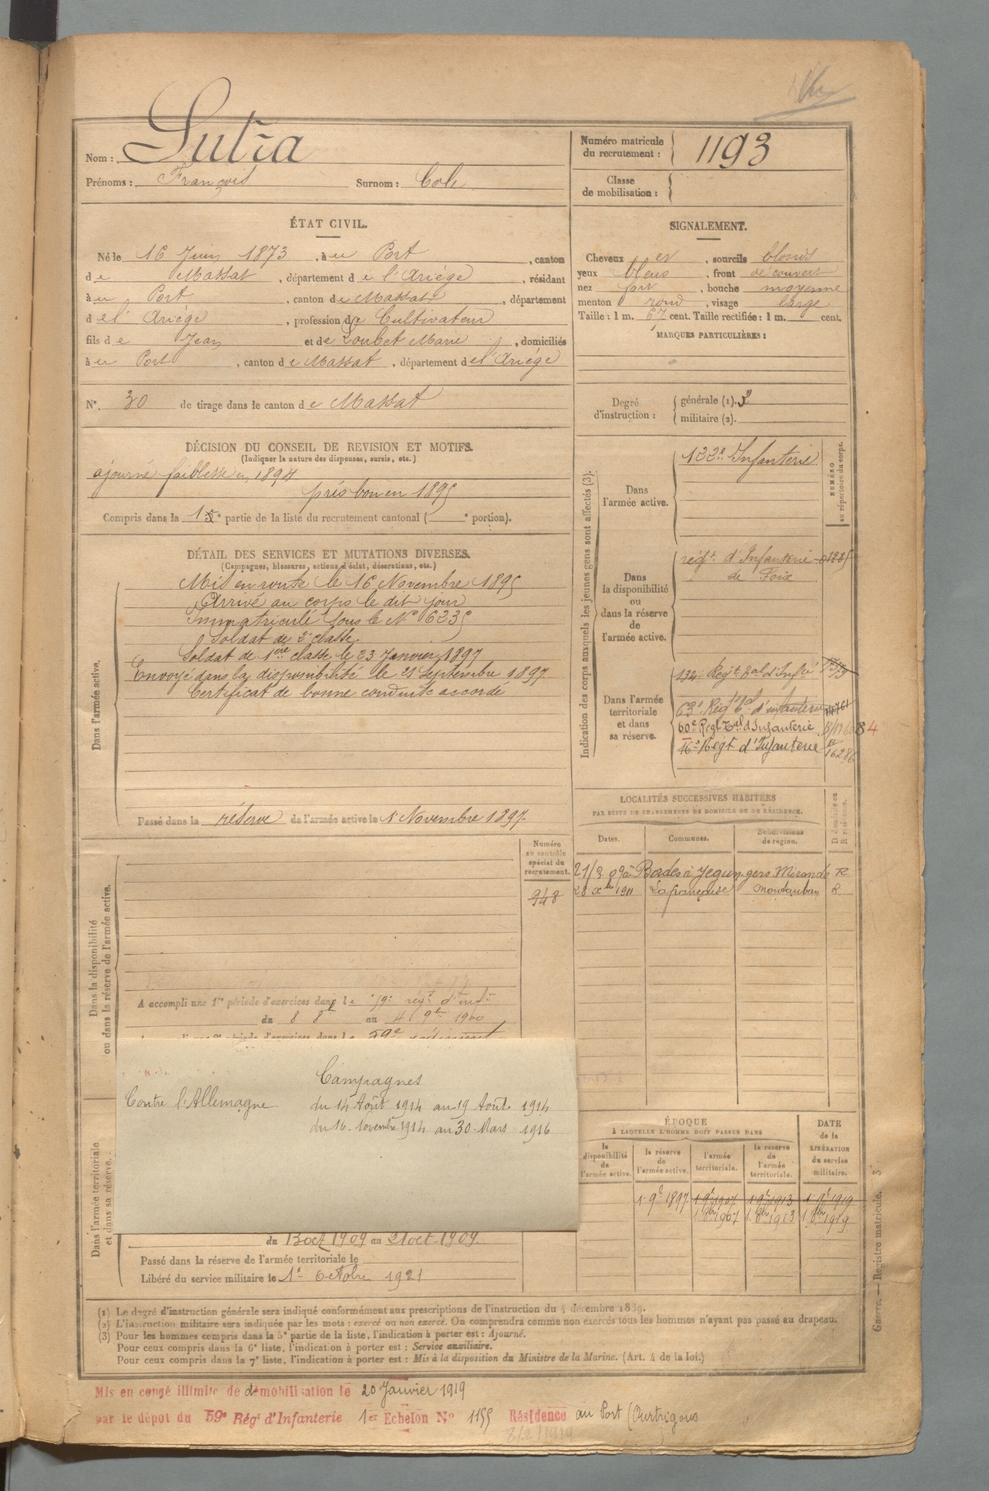 Nom : Lutra
Prénoms : François Surnom :
Numéro matricule du recrutement : 1193
Classe de mobilisation :
ÉTAT CIVIL.
Né le 16 Juin 1873, à u Port, canton
d e Massat, département d e l'Ariége, résidant
à u Port, canton d e Massat, département
d e l'Ariége, profession d e Cultivateur
fils d e Jean et d e Loubet Marie, domiciliés
à u Port, canton d e Massat, département d el'Ariége
N°. 30 de tirage dans le canton d e Massat
SIGNALEMENT.
Cheveux et, sourcils blonds
yeux bleus, front découvert
nez fort, bouche moyenne
menton rond, visage large
Taille : 1 m. 67 cent. Taille rectifiée : 1 m. cent.
MARQUES PARTICULIÈRES :
Degré d'instruction : générale (1).
militaire (2).
DÉCISION DU CONSEIL DE REVISION ET MOTIFS.
(Indiquer la nature des dispenses, sursis, etc.)
ajourné faiblesse en 1894
pris bon en 1895
Compris dans la partie de la liste du recrutement cantonal ( portion).
DÉTAIL DES SERVICES ET MUTATIONS DIVERSES.
(Campagnes, blessures, actions d'éclat, décorations, etc.)
Dans l'armée active.
Mis en route le 16 Novembre 1895
Arrivé au corps le dit jour
Immatriculé sous le N° 6235
Soldat de 2e classe.
Soldat de 1ère classe le 23 Janvier 1897
Envoyé dans la disponibilité le 21 Septembre 1897
Certificat de bonne conduite accordé
Passé dans la réserve de l'armée active le 1er Novembre 1897
Indication des corps auxquels les jeunes gens sont affectés (3).
NUMÉRO au répertoire du corps.
Dans l'armée active. Infanterie
Dans la disponibilité ou dans la réserve de l'armée active. régt. d'Infanterie
de Foix
Dans l'armée territoriale et dans sa réserve. 134e Régt. tal d'Infie
63e Régt tal d'infanterie
60e Regt Tal d'Infanterie
16e Régt d'Infanterie
LOCALITÉS SUCCESSIVES HABITÉES
PAR SUITE DE CHANGEMENTS DE DOMICILE OU DE RÉSIDENCE.
Dates. Communes. Subdivisions de région.
21/2 09 à Jegun gers Mirande R
1911 Lafrançaise Montauban R
Numéro au contrôle spécial du recrutement.
948
Dans la disponibilité ou dans la réserve de l'armée active.
A accompli une 1re période d'exercices dans le régt d'inf
du 8 8bre au 4 9bre 1900
59e régiment
Campagnes
Contre l'Allemagne du 14 Août 1914 au 19 Août 1914
du 16 novembre 1914 au 30 Mars 1916
Dans l'armée territoriale et dans sa réserve.
du 13 oct 1909 au 21 oct 1909.
Passé dans la réserve de l'armée territoriale le
Libéré du service militaire le 1er octobre 1921
ÉPOQUE
À LAQUELLE L'HOMME DOIT PASSER DANS
la disponibilité de l'armée active. la réserve de l'armée active. l'armée territoriale. la réserve de l'armée territoriale. DATE de la LIBÉRATION du service militaire.
1 9e 1897 1 9e 1907 1 9e 1913 1 9e 1919
1 8bre 1907 1 8bre 1913 1 8bre 1919
(1) Le degré d'instruction générale sera indiqué conformément aux prescriptions de l'instruction du 4 décembre 1889.
(2) L'instruction militaire sera indiquée par les mots : exercé ou non exercé. On comprendra comme non exercés tous les hommes n'ayant pas passé au drapeau.
(3) Pour les hommes compris dans la 5e partie de la liste, l'indication à porter est : Ajourné.
Pour ceux compris dans la 6e liste, l'indication à porter est : Service auxiliaire.
Pour ceux compris dans la 7e liste, l'indication à porter est : Mis à la disposition du Ministre de la Marine. (Art. 4 de la loi.)
Guerre. — Registre matricule.
Mis en congé illimité de démobilisation le 20 Janvier 1919
par le dépôt du 59e Régt d'Infanterie 1er Echelon N° 1155 Résidence au Port (Ourtrigous